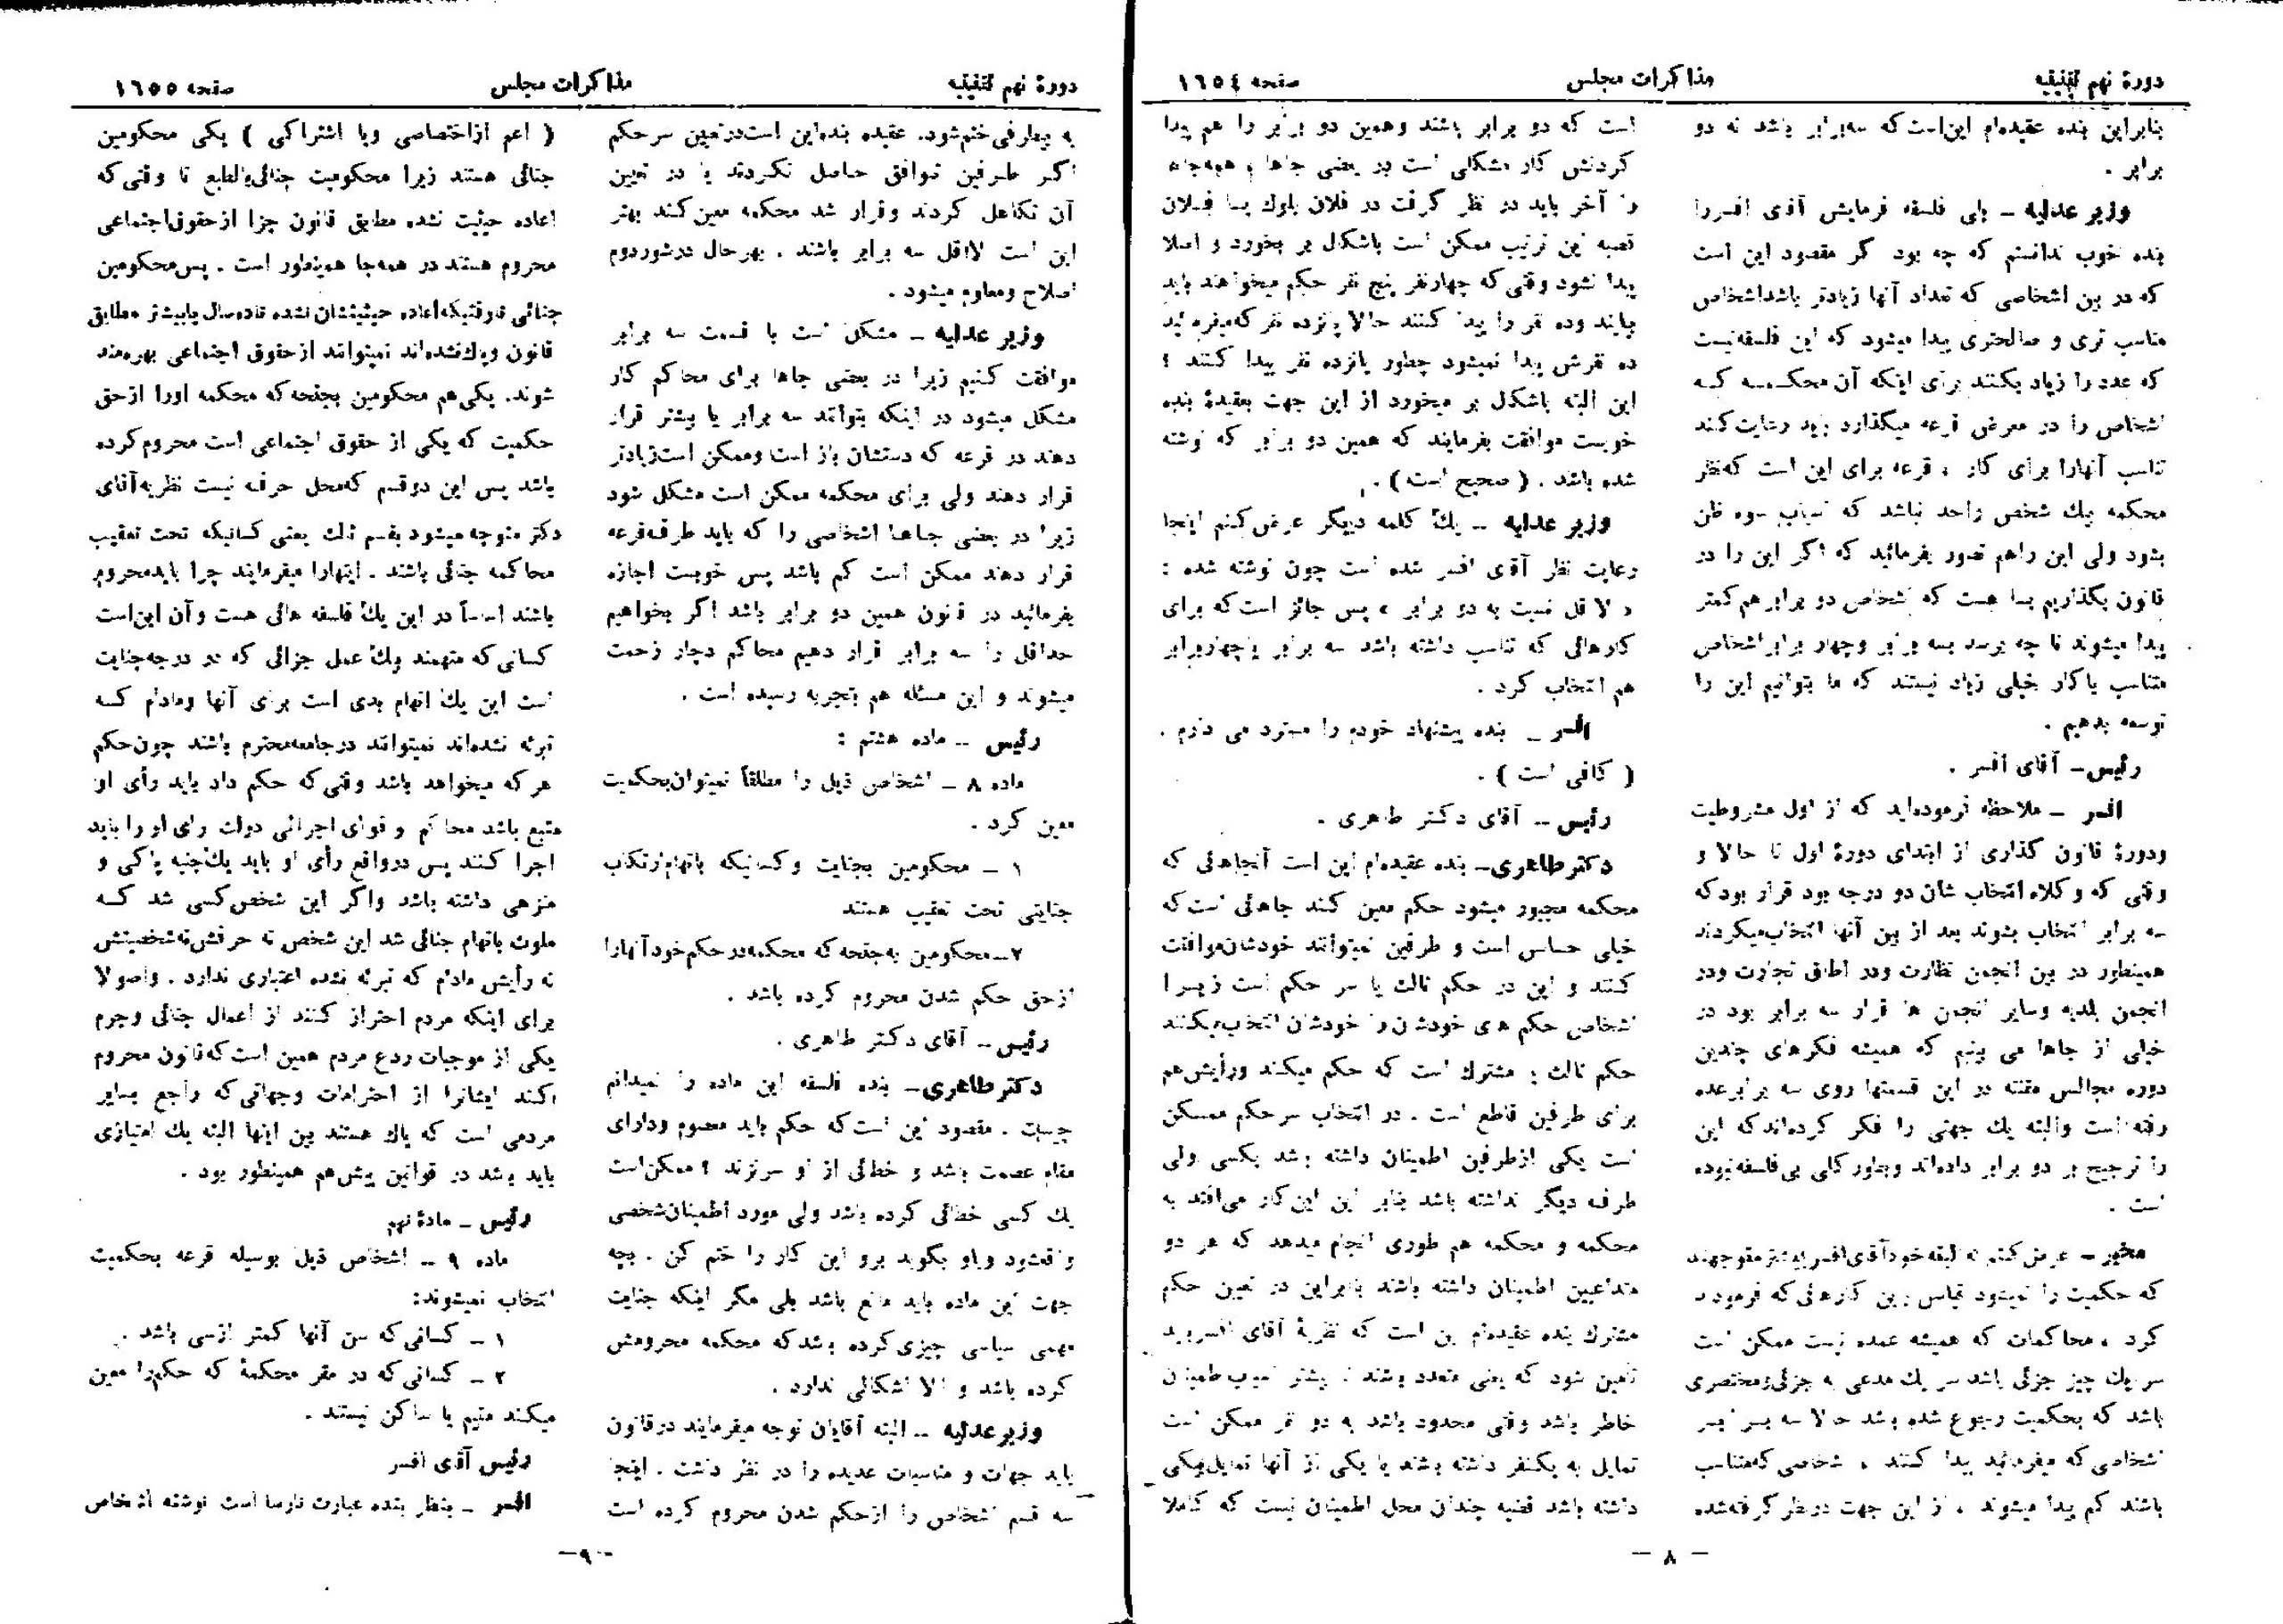 دورهٔ نهم تقنینیه
مذاکرات مجلس
صفحه ۱٦٥٤
بنابراین بنده عقیده‌ام این‌است که سه‌برابر باشد نه دو
برابر .
وزیر عدلیه – بلی فلسفه فرمایش آقای افسررا
بنده خوب ندانستم که چه بود اگر مقصود این است
که در بین اشخاصی که تعداد آنها زیادتر باشداشخاص
مناسب تری و صالحتری پیدا میشود که این فلسفه‌نیست
که عدد را زیاد بکنند برای اینکه آن محکمــه کــه
اشخاص را در معرض قرعه میگذارد باید رعایت کند
تناسب آنهارا برای کار ، قرعه برای این است که‌نظر
محکمه یك شخص واحد نباشد که اسباب سوء ظن
بشود ولی این راهم تصور بفرمائید که اگر این را در
قانون بگذاریم بسا هست که اشخاص دو برابر هم کمتر
پیدا میشوند تا چه برسد بسه برابر وچهار برابر اشخاص
متناسب باکار خیلی زیاد نیستند که ما بتوانیم این را
توسعه بدهیم .
رئیس– آقای افسر .
افسر – ملاحظه فرموده‌اید که از اول مشروطیت
ودورهٔ قانون گذاری از ابتدای دورهٔ اول تا حالا و
وقتی که وکلاء انتخاب شان دو درجه بود قرار بود که
سه برابر انتخاب بشوند بعد از بین آنها انتخاب‌میکردند
همینطور در بین انجمن نظارت ودر اطاق تجارت ودر
انجمن بلدیه وسایر انجمن ها قرار سه برابر بود در
خیلی از جاها می بینم که همیشه فکرهای چندین
دوره مجالس مقننه در این قسمتها روی سه برابرعده
رفته است والبته یك جهتی را فکر کرده‌اند که این
را ترجیح بر دو برابر داده‌اند وبطور کلی بی‌فلسفه‌نبوده
است .
مخبر – عرض کنم که البته خود آقای افسر بیشتر متوجهند
که حکمیت را نمیشود قیاس باین کارهائی‌که فرمودند
کرد ، محاکمات که همیشه عمده نیست ممکن است
سر یك چیز جزئی باشد سر یك مدعی به جزئی‌ومختصری
باشد که بحکمیت رجوع شده باشد حالا سه بـرابـر
اشخاصی که میفرمائید پیدا کنند ، اشخاصی که‌متناسب
باشند کم پیدا میشوند ، از این جهت درنظر گرفته‌شده
است که دو برابر باشند وهمین دو برابر را هم پیدا
کردنش کار مشکلی است در بعضی جاها ، همه‌جاها
را آخر باید در نظر گرفت در فلان بلوك یــا فــلان
قصبه این ترتیب ممکن است باشکال بر بخورد و اصلا
پیدا نشود وقتی که چهارنفر پنج نفر حکم میخواهند باید
بیایند وده نفر را پیدا کنند حالا پانزده نفر که‌میفرمائید
ده نفرش پیدا نمیشود چطور پانزده نفر پیدا کنند ؟
این البته باشکال بر میخورد از این جهت بعقیدهٔ بنده
خوبست موافقت بفرمایند که همین دو برابر که نوشته
شده باشد . ( صحیح است ) .
وزیر عدلیه – یك کلمه دیگر عرض کنم اینجا
رعایت نظر آقای افسر شده است چون نوشته شده :
« لا قل نسبت به دو برابر » پس جائز است که برای
کارهائی که تناسب داشته باشد سه برابر یاچهاربرابر
هم انتخاب کرد .
افسر – بنده پیشنهاد خودم را مسترد می دارم .
( کافی است ) .
رئیس – آقای دکتر طاهری .
دکتر طاهری– بنده عقیده‌ام این است آنجاهائی که
محکمه مجبور میشود حکم معین کند جاهائی است که
خیلی حساس است و طرفین نمیتوانند خودشان‌موافقت
کنند و این در حکم ثالث یا سر حکم است زیـرا
اشخاص حکم های خودشان را خودشان انتخاب‌میکنند
حکم ثالث یا مشترك است که حکم میکند ورأیش‌هم
برای طرفین قاطع است . در انتخاب سرحکم ممکن
است یکی ازطرفین اطمینان داشته باشد بکسی ولی
طرف دیگر نداشته باشد بنابر این این‌کار می‌افتد به
محکمه و محکمه هم طوری انجام میدهد که هر دو
متداعیین اطمینان داشته باشند بنابراین در تعیین حکم
مشترك بنده عقیده‌ام این است که نظریهٔ آقای افسرباید
تأمین شود که یعنی متعدد باشند تا بیشتر اسباب‌اطمینان
خاطر باشد وقتی محدود باشد به دو نفر ممکن است
تمایل به یکنفر داشته باشند یا یکی از آنها تمایل‌بیکی
داشته باشد قضیه چندان محل اطمینان نیست که کاملا
– ۸ –
دورهٔ نهم تقنینیه
مذاکرات مجلس
صفحه ۱٦٥٥
به بیطرفی ختم‌شود. عقیده بنده‌این است‌درتعیین سرحکم
اگـر طـرفین توافق حـاصل نکـردند یا در تعیین
آن تکاهل کردند وقرار شد محکمه معین کند بهتر
این است لااقل سه برابر باشند . بهرحال درشوردوم
اصلاح ومعلوم میشود .
وزیر عدلیه – مشکل است با قسمت سه برابر
موافقت کنیم زیرا در بعضی جاها برای محاکم کار
مشکل میشود در اینکه بتوانند سه برابر یا بیشتر قرار
دهند در قرعه که دستشان باز است وممکن است‌زیادتر
قرار دهند ولی برای محکمه ممکن است مشکل شود
زیرا در بعضی جـاهـا اشخاصی را که باید طرف‌قرعه
قرار دهند ممکن است کم باشد پس خوبست اجازه
بفرمائید در قانون همین دو برابر باشد اگر بخواهیم
حداقل را سه برابر قرار دهیم محاکم دچار زحمت
میشوند و این مسئله هم بتجربه رسیده است .
رئیس – ماده هشتم :
ماده ۸ – اشخاص ذیل را مطلقاً نمیتوان‌بحکمیت
معین کرد .
۱ – محکومین بجنایت وکسانیکه باتهام‌ارتکاب
جنایتی تحت تعقیب هستند
۲– محکومین به‌جنحه که محکمه‌درحکم‌خود آنهارا
ازحق حکم شدن محروم کرده باشد .
رئیس – آقای دکتر طاهری .
دکتر طاهری– بنده فلسفه این ماده را نمیدانم
چیست . مقصود این است‌که حکم باید معصوم ودارای
مقام عصمت باشد و خطائی از او سرنزند ؟ ممکن‌است
یك کسی خطائی کرده باشد ولی مورد اطمینان‌شخصی
واقع‌شود وباو بگوید برو این کار را ختم کن . بچه
جهت این ماده باید مانع باشد بلی مگر اینکه جنایت
مهمی سیاسی چیزی کرده باشد که محکمه محرومش
کرده باشد و الا اشکالی ندارد .
وزیرعدلیه – البته آقایان توجه میفرمایند درقانون
باید جهات و مناسبات عدیده را در نظر داشت . اینجا
سه قسم اشخاص را ازحکم شدن محروم کرده است
( اعم ازاختصاصی ویا اشتراکی ) یکی محکومین
جنائی هستند زیرا محکومیت جنائی‌بالطبع تا وقتی‌که
اعاده حیثیت نشده مطابق قانون جزا ازحقوق‌اجتماعی
محروم هستند در همه‌جا همینطور است . پس‌محکومین
جنائی تاوقتیکه‌اعاده حیثیتشان نشده تاده‌سال یابیشتر مطابق
قانون وپاك‌نشده‌اند نمیتوانند ازحقوق اجتماعی بهره‌مند
شوند. یکی‌هم محکومین بجنحه که محکمه اورا ازحق
حکمیت که یکی از حقوق اجتماعی است محروم‌کرده
باشد پس این دوقسم که‌محل حرف نیست نظریه‌آقای
دکتر متوجه میشود بقسم ثالث یعنی کسانیکه تحت تعقیب
محاکمه جنائی باشند . اینهارا میفرمایند چرا بایدمحروم
باشند اساساً در این یك فلسفه هائی هست وآن این‌است
کسانی که متهمند بیك عمل جزائی که در درجه‌جنایت
است این یك اتهام بدی است برای آنها ومادام کــه
تبرئه نشده‌اند نمیتوانند درجامعه‌محترم باشند چون‌حکم
هر که میخواهد باشد وقتی که حکم داد باید رأی او
متبع باشد محاکم و قوای اجرائی دولت رأی او را باید
اجرا کنند پس درواقع رأی او باید یك‌جنبه پاکی و
منزهی داشته باشد واگر این شخص کسی شد کــه
ملوث باتهام جنائی شد این شخص نه حرفش‌نه‌شخصیتش
نه رأیش مادام که تبرئه نشده اعتباری ندارد . واصولا
برای اینکه مردم احتراز کنند از اعمال جنائی وجرم
یکی از موجبات ردع مردم همین است‌که‌قانون محروم
کند ایشانرا از احترامات وجهاتی که راجع بسایر
مردمی است که پاك هستند بین اینها البته یك امتیازی
باید باشد در قوانین پیش‌هم همینطور بود .
رئیس – مادهٔ نهم
ماده ۹ – اشخاص ذیل بوسیله قرعه بحکمیت
انتخاب نمیشوند:
۱ – کسانی که سن آنها کمتر ازسی باشد .
۲ – کسانی که در مقر محکمهٔ که حکم‌را معین
میکند مقیم یا ساکن نیستند .
رئیس آقای افسر
افسر – بنظر بنده عبارت نارسا است نوشته اشخاص
–۹–